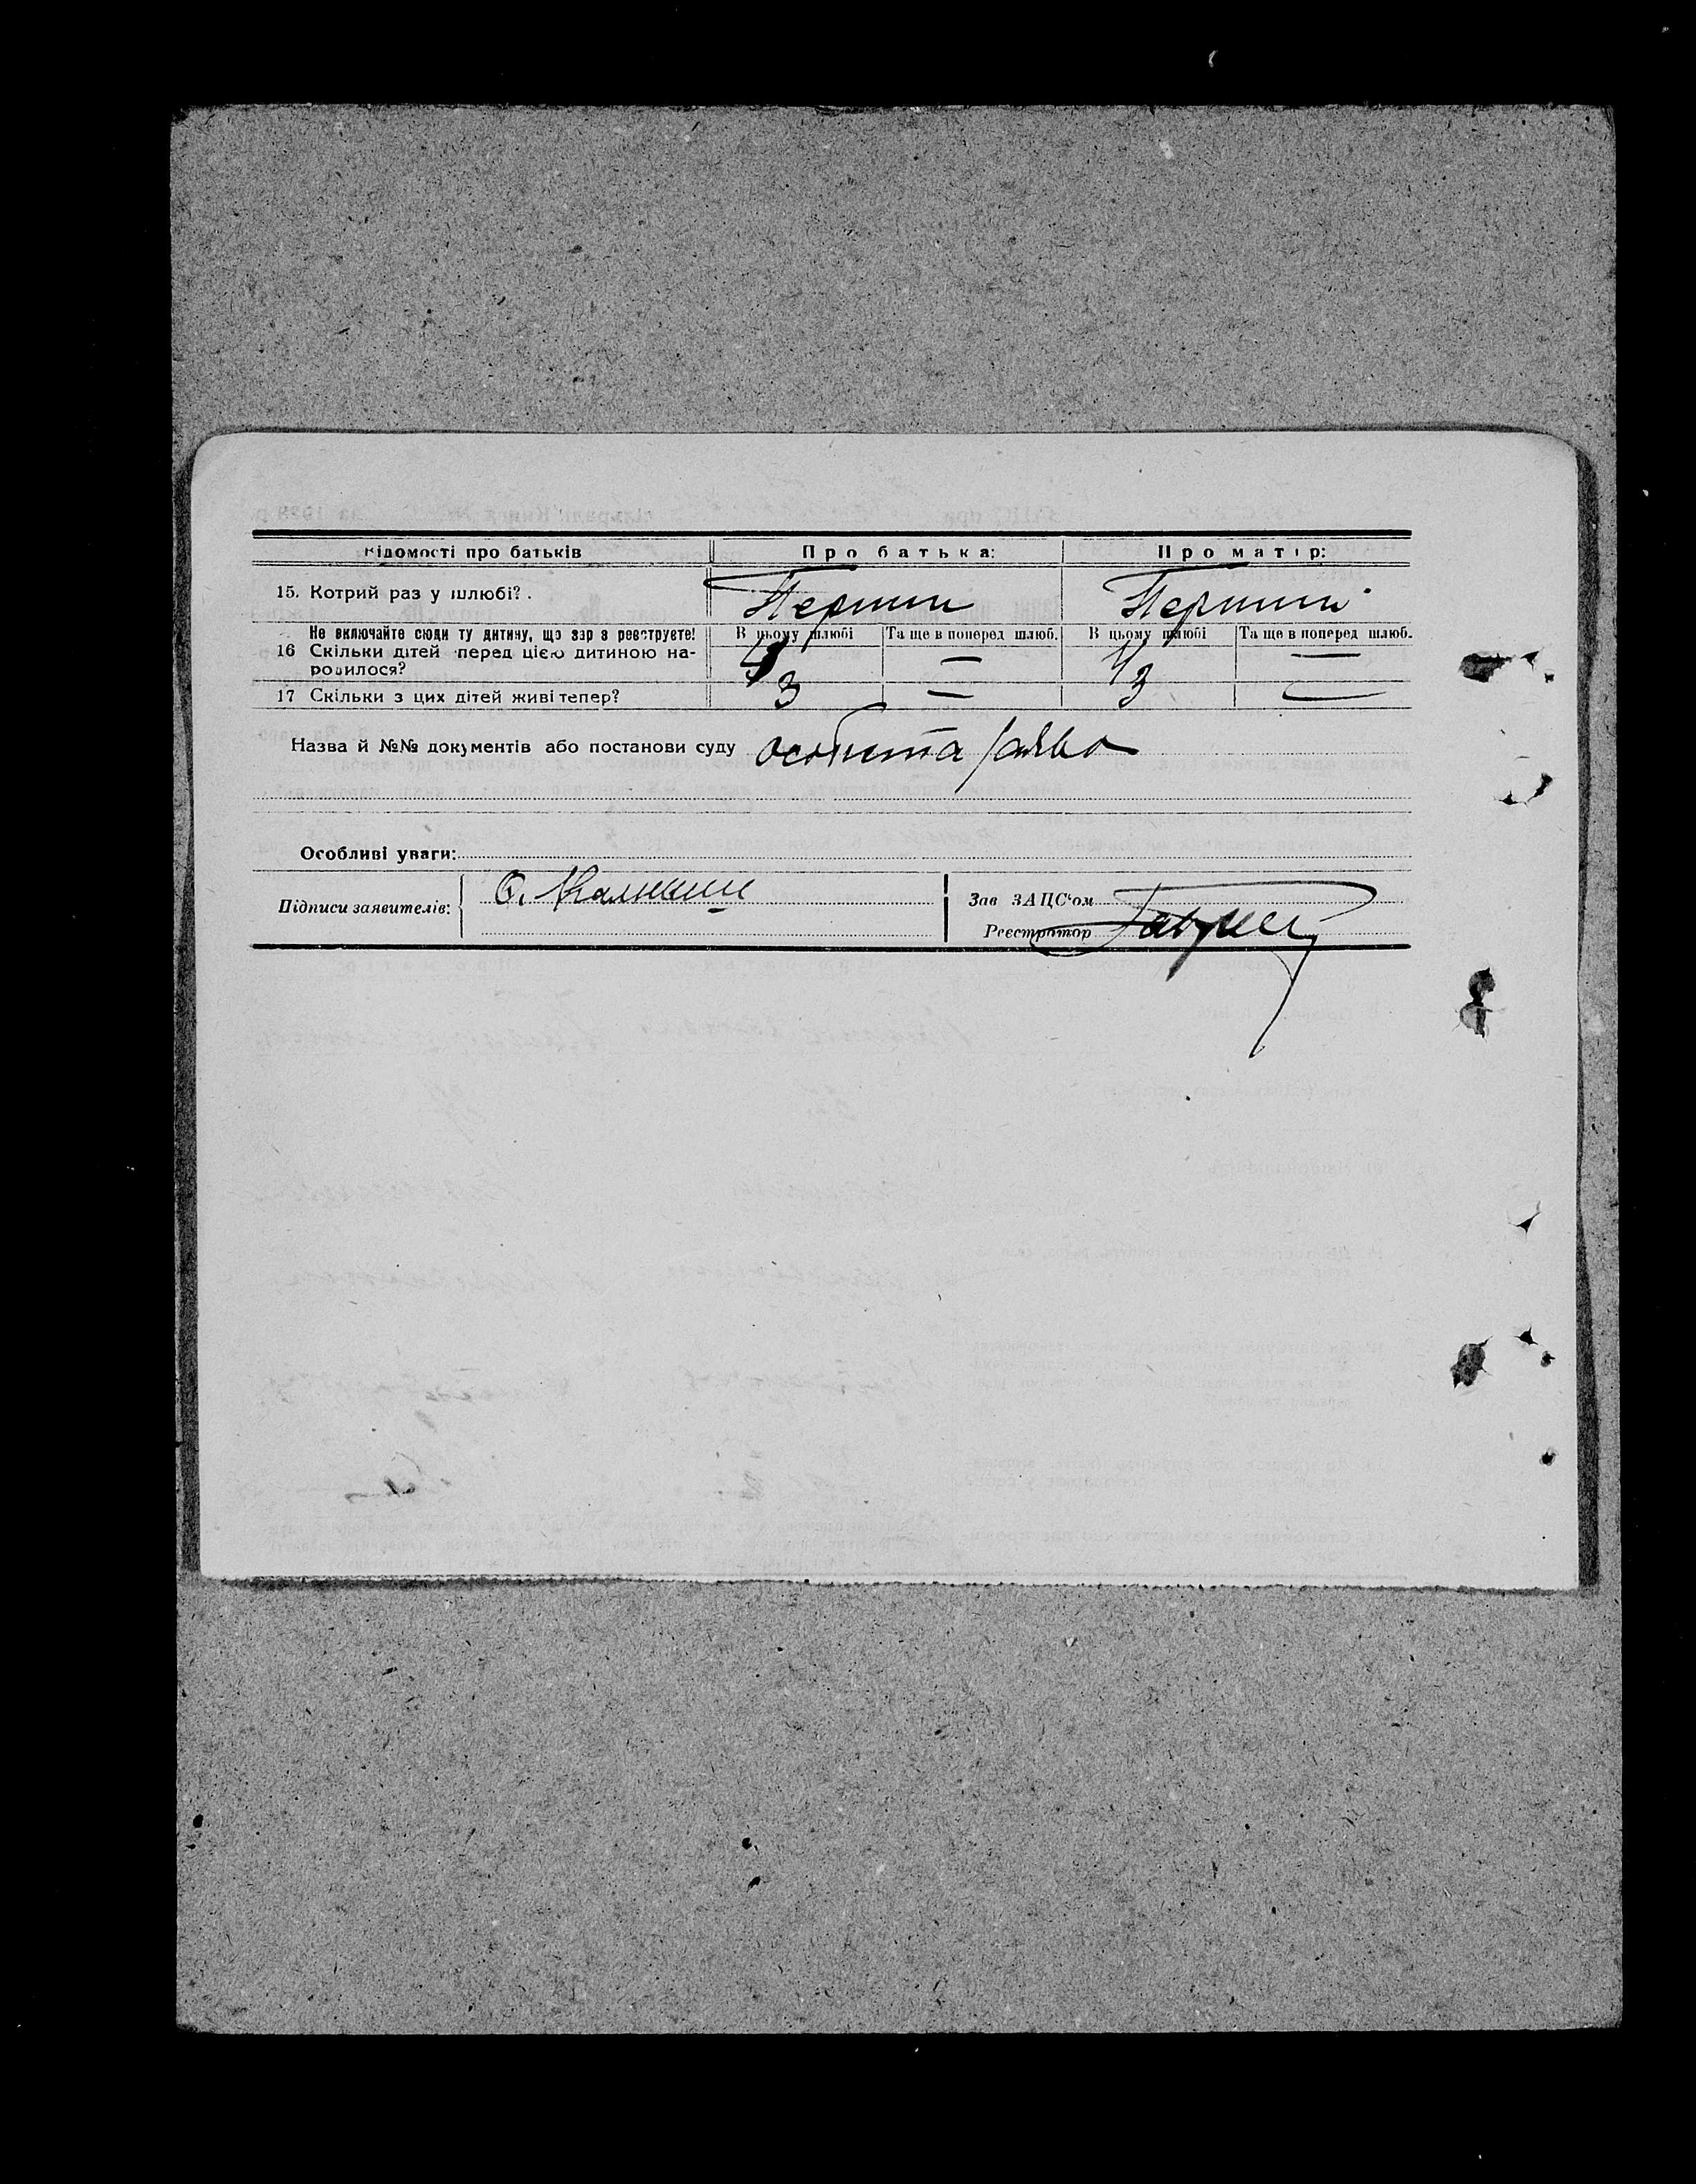 Відомості про батьків Про батька: Про матір:
15. Котрий раз у шлюбі? Перший Перший
Не включайте сюди ту дитину, що зар з реєструєте! В цьому шлюбі Та ще в поперед шлюб. В цьому шлюбі Та ще в поперед шлюб.
16 Скільки дітей перед цією дитиною на-
родилося? 4 — 4 —
17 Скільки з цих дітей живі тепер? 3 — 3 —
Назва й №№ документів або постанови суду особиста заява
Особливі уваги:
Підписи заявителів: Зав ЗАЦС'ом
Реєстратор